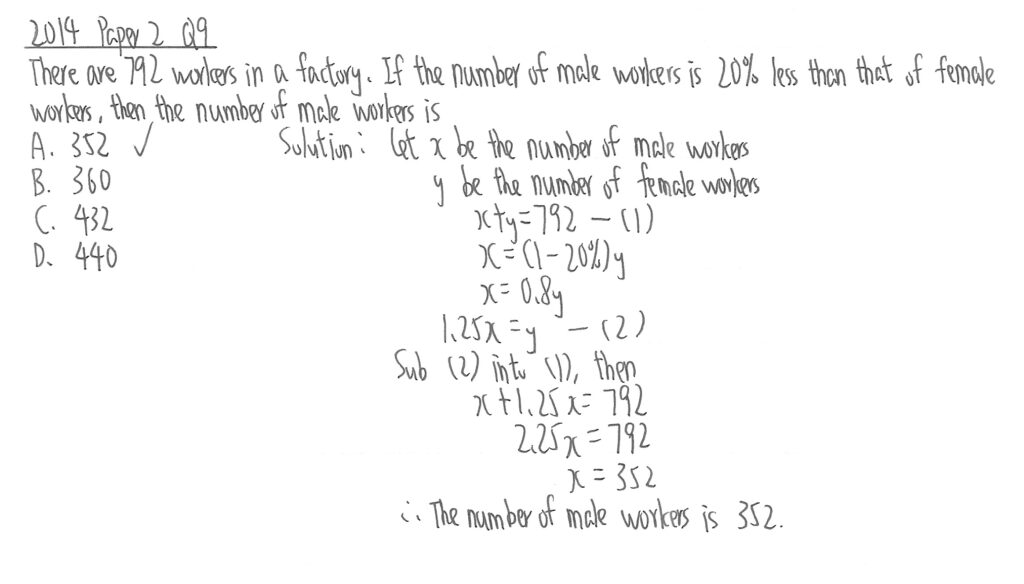 2014 Paper 2 Q9
There are 792 workers in a factory. If the number of male workers is 20% less than that of female
workers, then the number of male workers is
A. 352 ✓
B. 360
C. 432
D. 440
Solution: Let x be the number of male workers
y be the number of female workers
x+y=792 — (1)
x=(1-20%)y
x=0.8y
1.25x=y — (2)
Sub (2) into (1), then
x+1.25x=792
2.25x=792
x=352
∴ The number of male workers is 352.